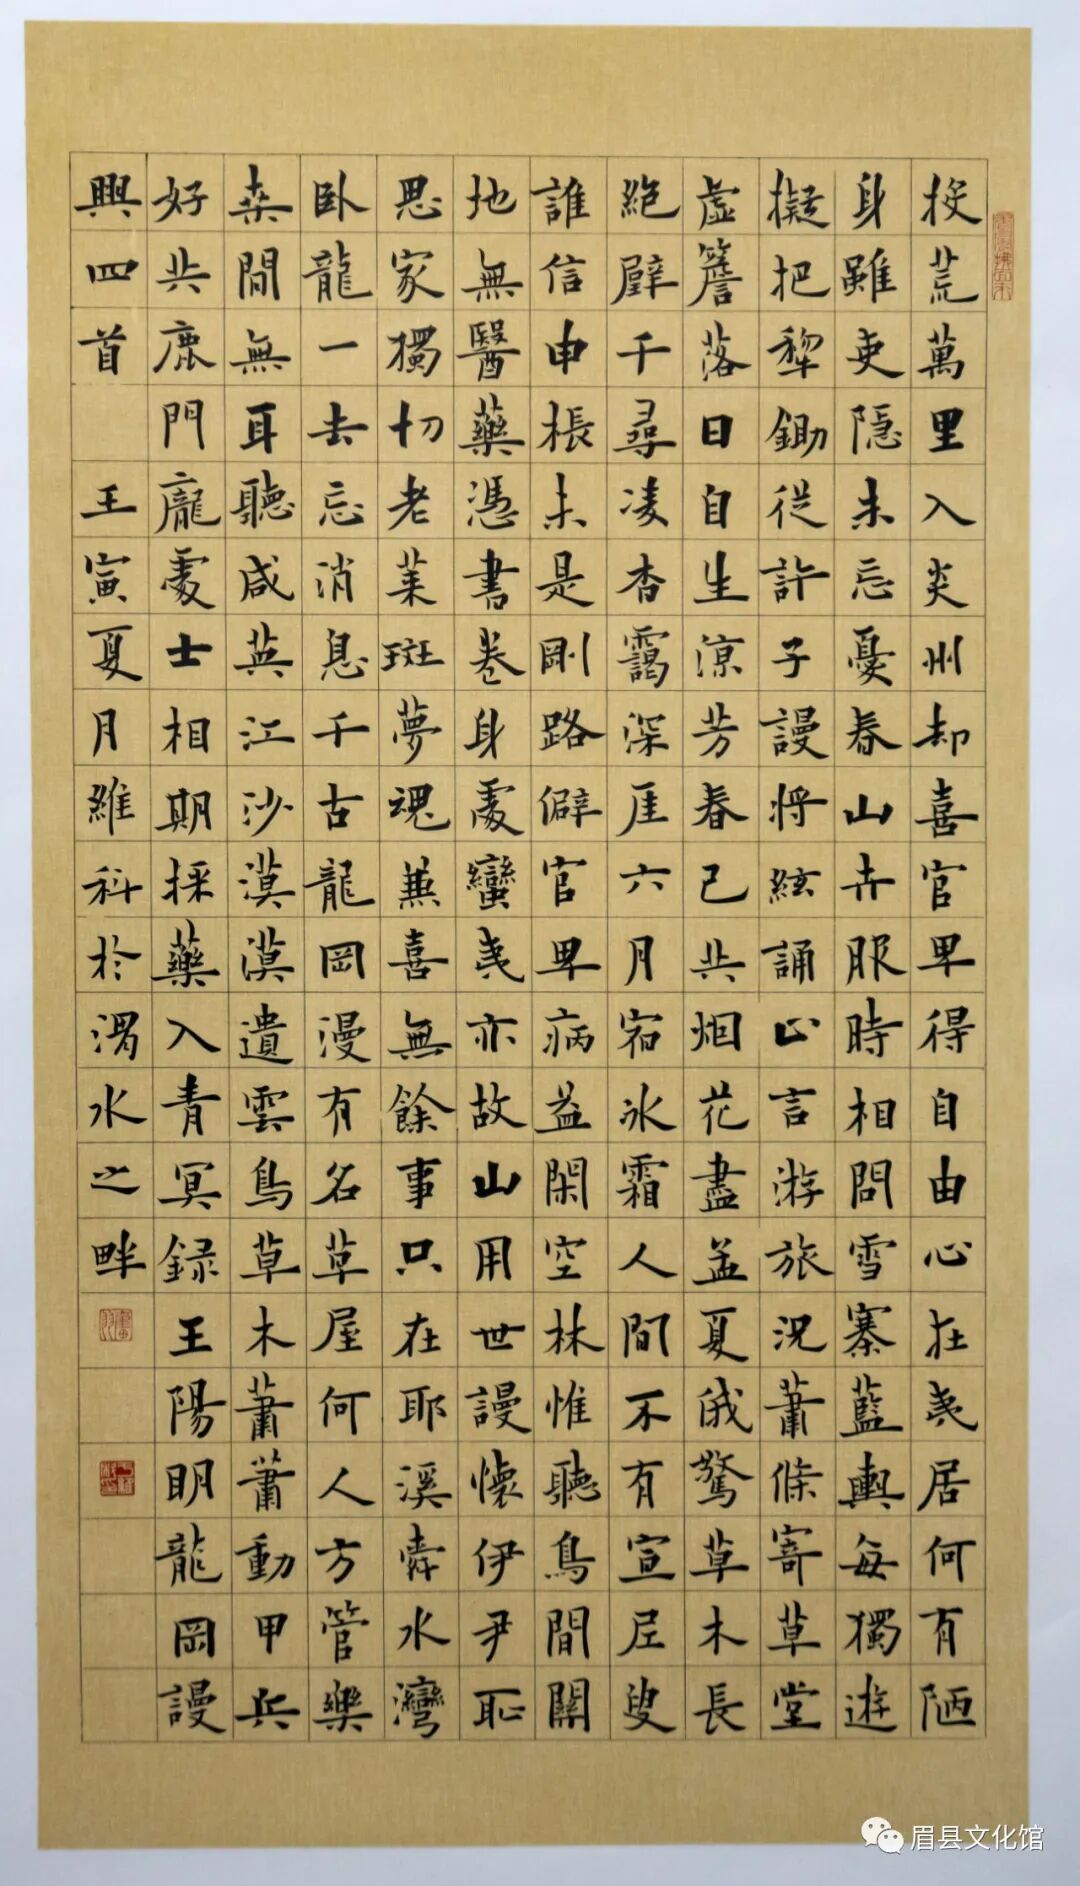 投荒萬里入炎州却喜官卑得自由心在夷居何有陋
身雖吏隱未忘憂春山卉服時相問雪寨藍輿每獨遊
擬把犂鋤從許子謾將絃誦止言游旅況蕭條寄草堂
虛簷落日自生涼芳春已共烟花盡孟夏俄驚草木長
絕壁千尋凌杳靄深厓六月宿冰霜人間不有宣尼叟
誰信申棖未是剛路僻官卑病益閑空林惟聽鳥間關
地無醫藥憑書卷身處蠻夷亦故山用世謾懷伊尹恥
思家獨切老萊斑夢魂兼喜無餘事只在耶溪舜水灣
卧龍一去忘消息千古龍岡漫有名草屋何人方管樂
桑間無耳聽咸英江沙漠漠遺雲鳥草木蕭蕭動甲兵
好共鹿門龐處士相期採藥入青冥録王陽明龍岡謾
興四首 壬寅夏月維科於渭水之畔
眉县文化馆